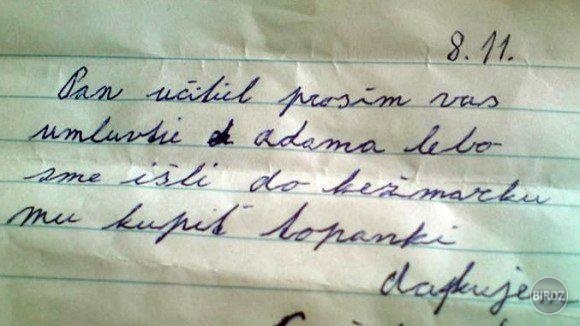 8.11.
Pan učitel prosim vas
umluvtie adama lebo
sme išli do kežmarku
mu kupiť topanki
dakujem
BIRDZ